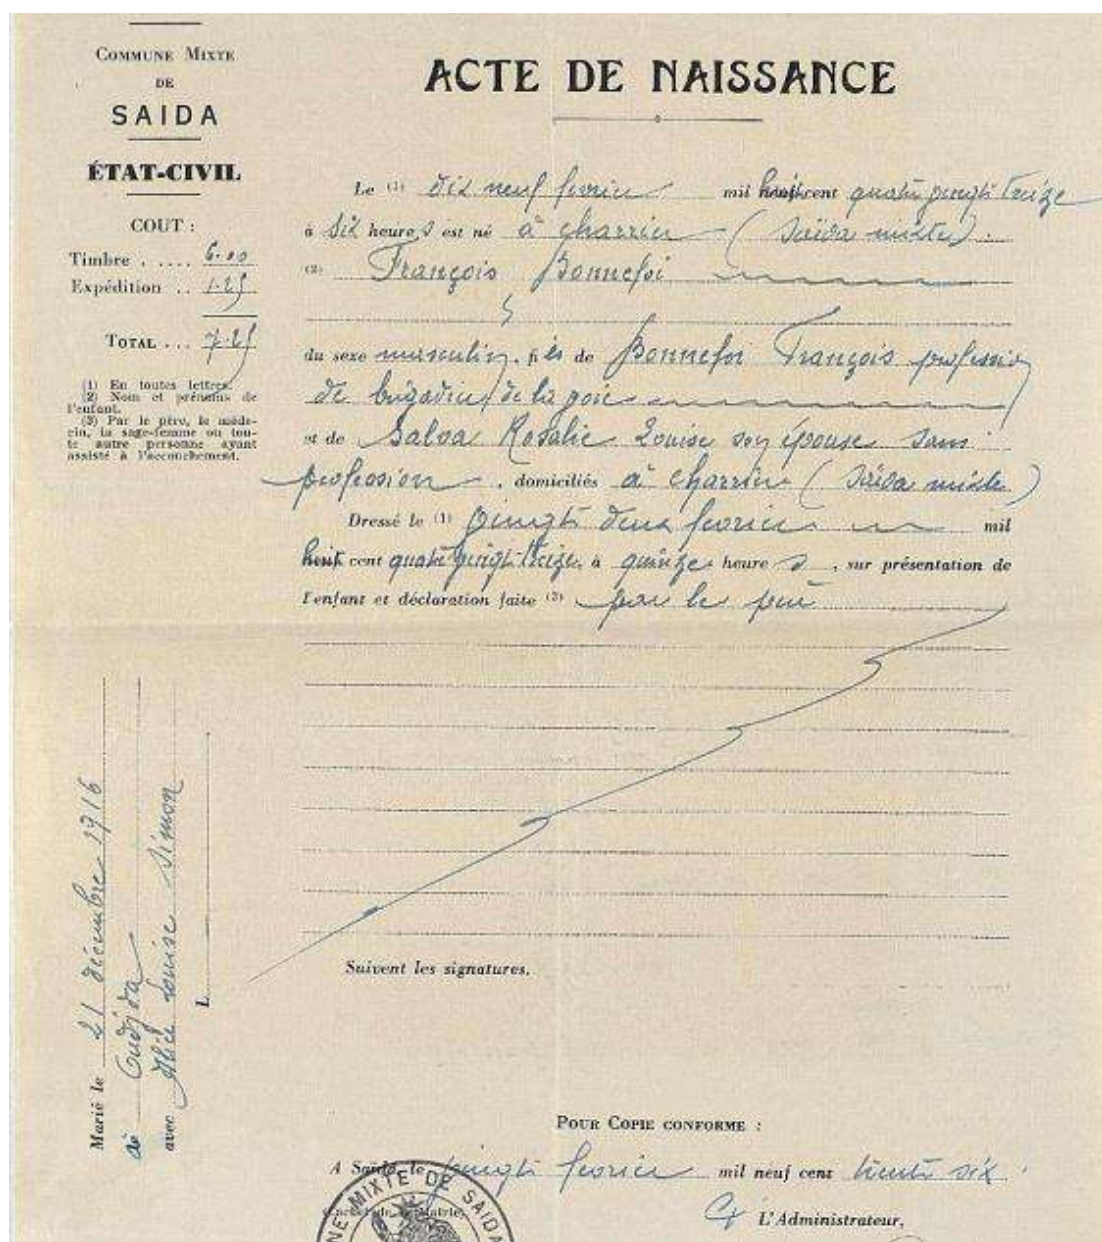 COMMUNE MIXTE
DE
SAIDA
ÉTAT-CIVIL
COUT :
Timbre . .... 6.00
Expédition .. 1.25
TOTAL ... 7.25
(1) En toutes lettres.
(2) Nom et prénoms de
l'enfant.
(3) Par le père, le méde-
cin, la sage-femme ou tou-
te autre personne ayant
assisté à l'accouchement.
ACTE DE NAISSANCE
Le (1) dix neuf fevrier mil huit cent quatre vingt treize
à six heures est né à charrier (Saïda mixte)
(2) François Bonnefoi
du sexe masculin, fils de Bonnefoi François profession
de brigadier de la voie
et de Salva Rosalie Louise son épouse sans
profession, domiciliés à charrier (Saïda mixte)
Dressé le (1) vingt deux fevrier mil
huit cent quatre vingt treize à quinze heures, sur présentation de
l'enfant et déclaration faite (3) par le père
Suivent les signatures.
Marié le 21 décembre 1916
à Oudjda
avec Alice Louise Simon
L
POUR COPIE CONFORME :
A Saïda, le vingt fevrier mil neuf cent trente six.
L'Administrateur,
MIXTE DE SAIDA